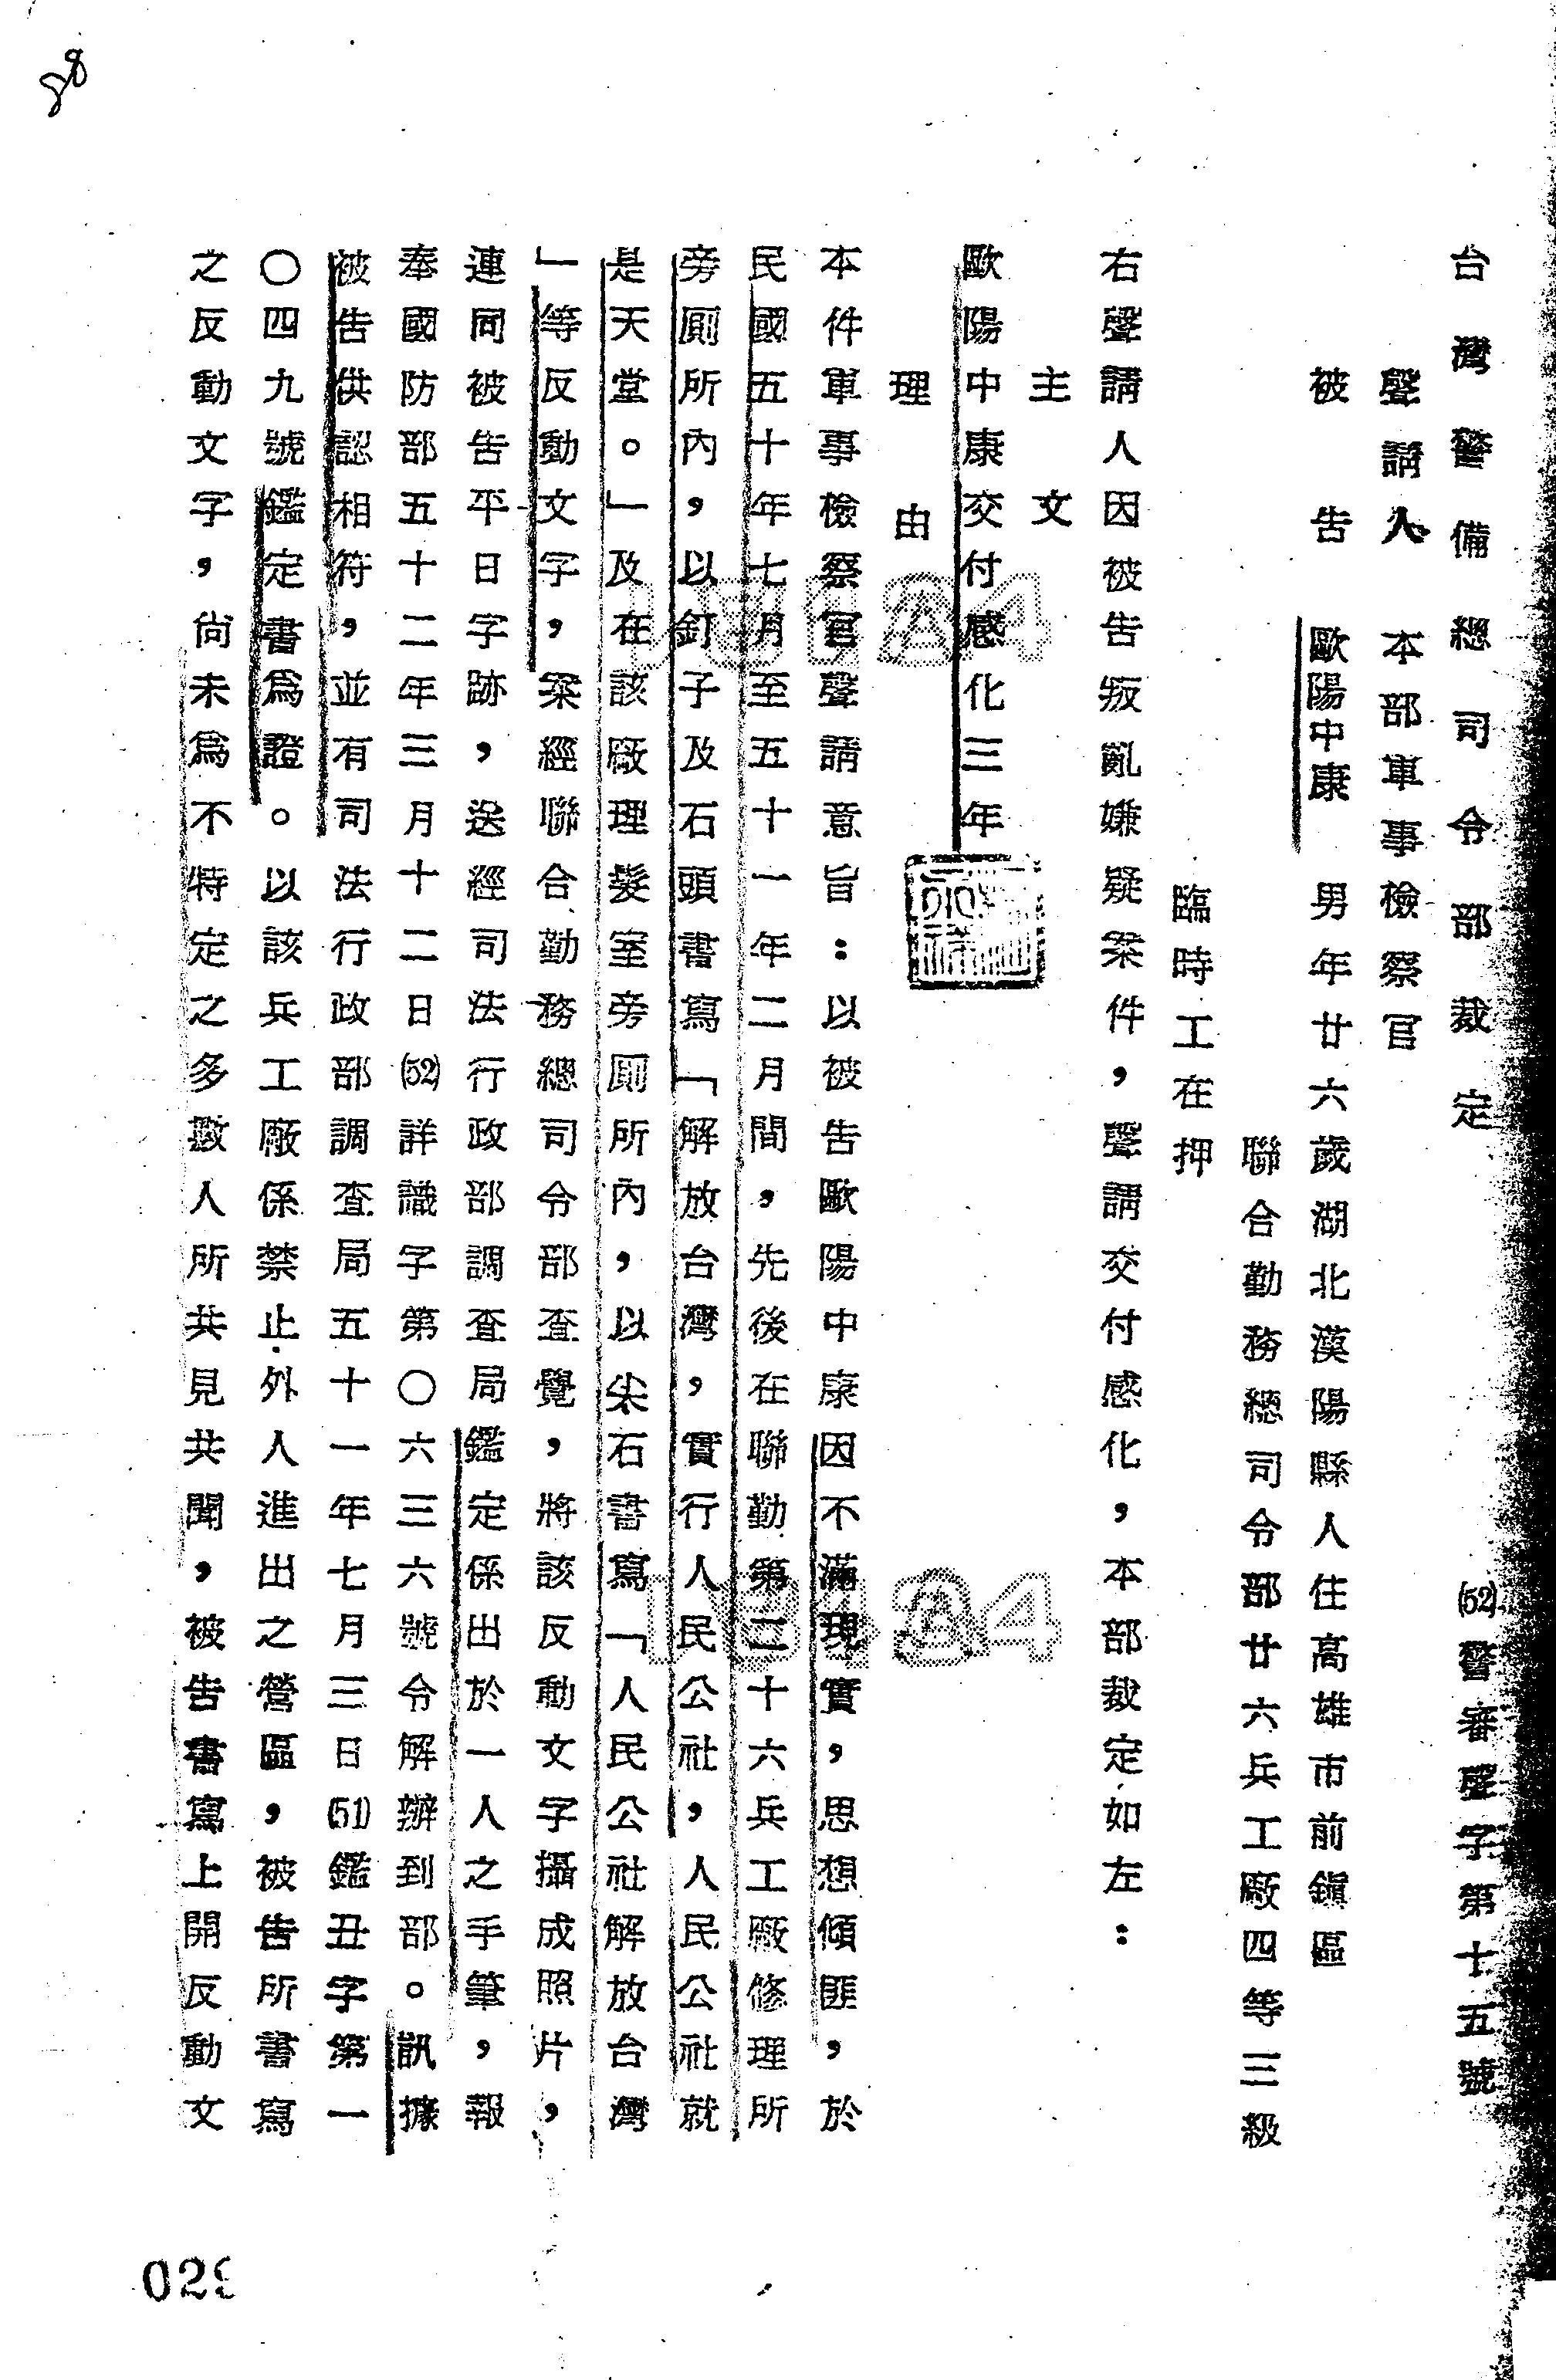 台灣警備總司令部裁定
(52)警審聲字第十五號
聲請人 本部軍事檢察官
被告 歐陽中康 男年廿六歲湖北漢陽縣人住高雄市前鎮區
聯合勤務總司令部廿六兵工廠四等三級
臨時工在押
右聲請人因被告叛亂嫌疑案件,聲請交付感化,本部裁定如左:
主文
歐陽中康交付感化三年
理由
本件軍事檢察官聲請意旨:以被告歐陽中康因不滿現實,思想傾匪,於
民國五十年七月至五十一年二月間,先後在聯勤第二十六兵工廠修理所
旁厠所內,以釘子及石頭書寫「解放台灣,實行人民公社,人民公社就
是天堂。」及在該廠理髮室旁厠所內,以尖石書寫「人民公社解放台灣
」等反動文字,案經聯合勤務總司令部查覺,將該反動文字攝成照片,
連同被告平日字跡,送經司法行政部調查局鑑定係出於一人之手筆,報
奉國防部五十二年三月十二日(52)詳識字第〇六三六號令解辦到部。訊據
被告供認相符,並有司法行政部調查局五十一年七月三日(51)鑑丑字第一
〇四九號鑑定書為證。以該兵工廠係禁止外人進出之營區,被告所書寫
之反動文字,尚未為不特定之多數人所共見共聞,被告書寫上開反動文
88
029